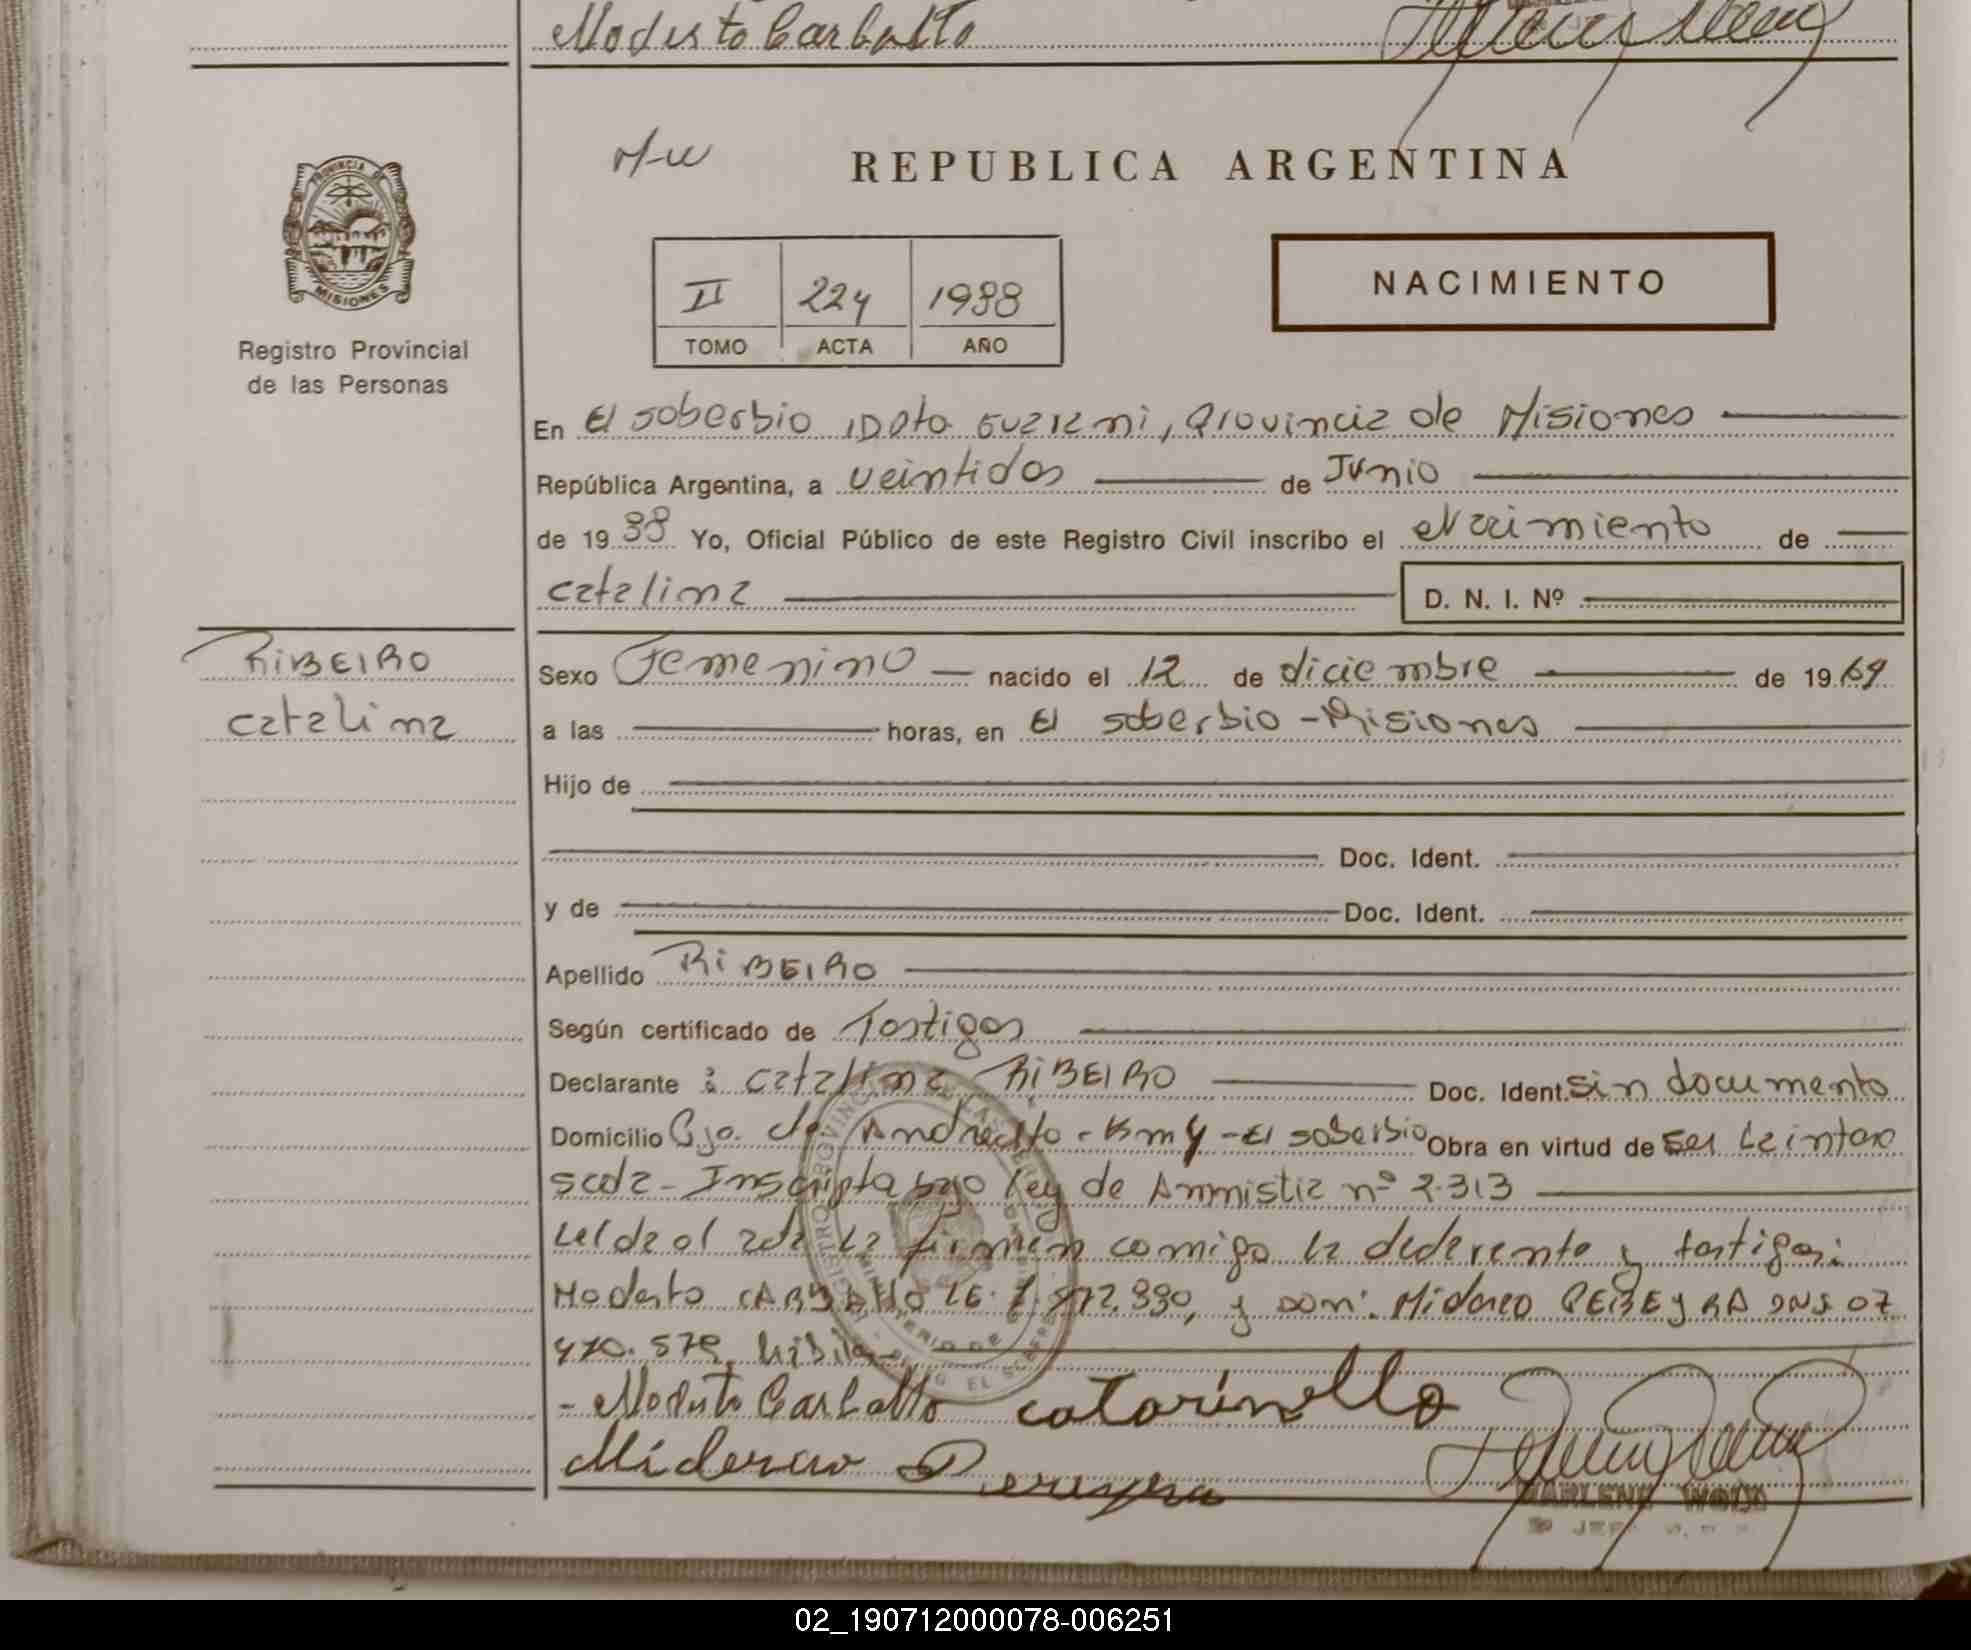 Modesto Carballo
M-W
REPUBLICA ARGENTINA
PROVINCIA DE
MISIONES
Registro Provincial
de las Personas
II 224 1988
TOMO ACTA AÑO
NACIMIENTO
En El Soberbio, Dpto Guarani, Provincia de Misiones
República Argentina, a veintidos de Junio
de 1988 Yo, Oficial Público de este Registro Civil inscribo el Nacimiento de
catalina D. N. I. Nº
RIBEIRO
catalina
Sexo Femenino nacido el 12 de diciembre de 1969
a las horas, en El soberbio - Misiones
Hijo de
Doc. Ident.
y de Doc. Ident.
Apellido RIBEIRO
Según certificado de Testigos
Declarante : catalina RIBEIRO Doc. Ident. sin documento
Domicilio de Andresito - Km 4 - El soberbio Obra en virtud de ser la intere
sada - Inscripta bajo Ley de Ammistia nº 2.313
Leida el acta la firman comigo la declarante y testigos:
Modesto CARBALLO LE. y don: PEREYRA DNI 07
470.579, habiles
- Modesto Carballo catarinallo
Pereyra
MARLENE
JEF
02_190712000078-006251